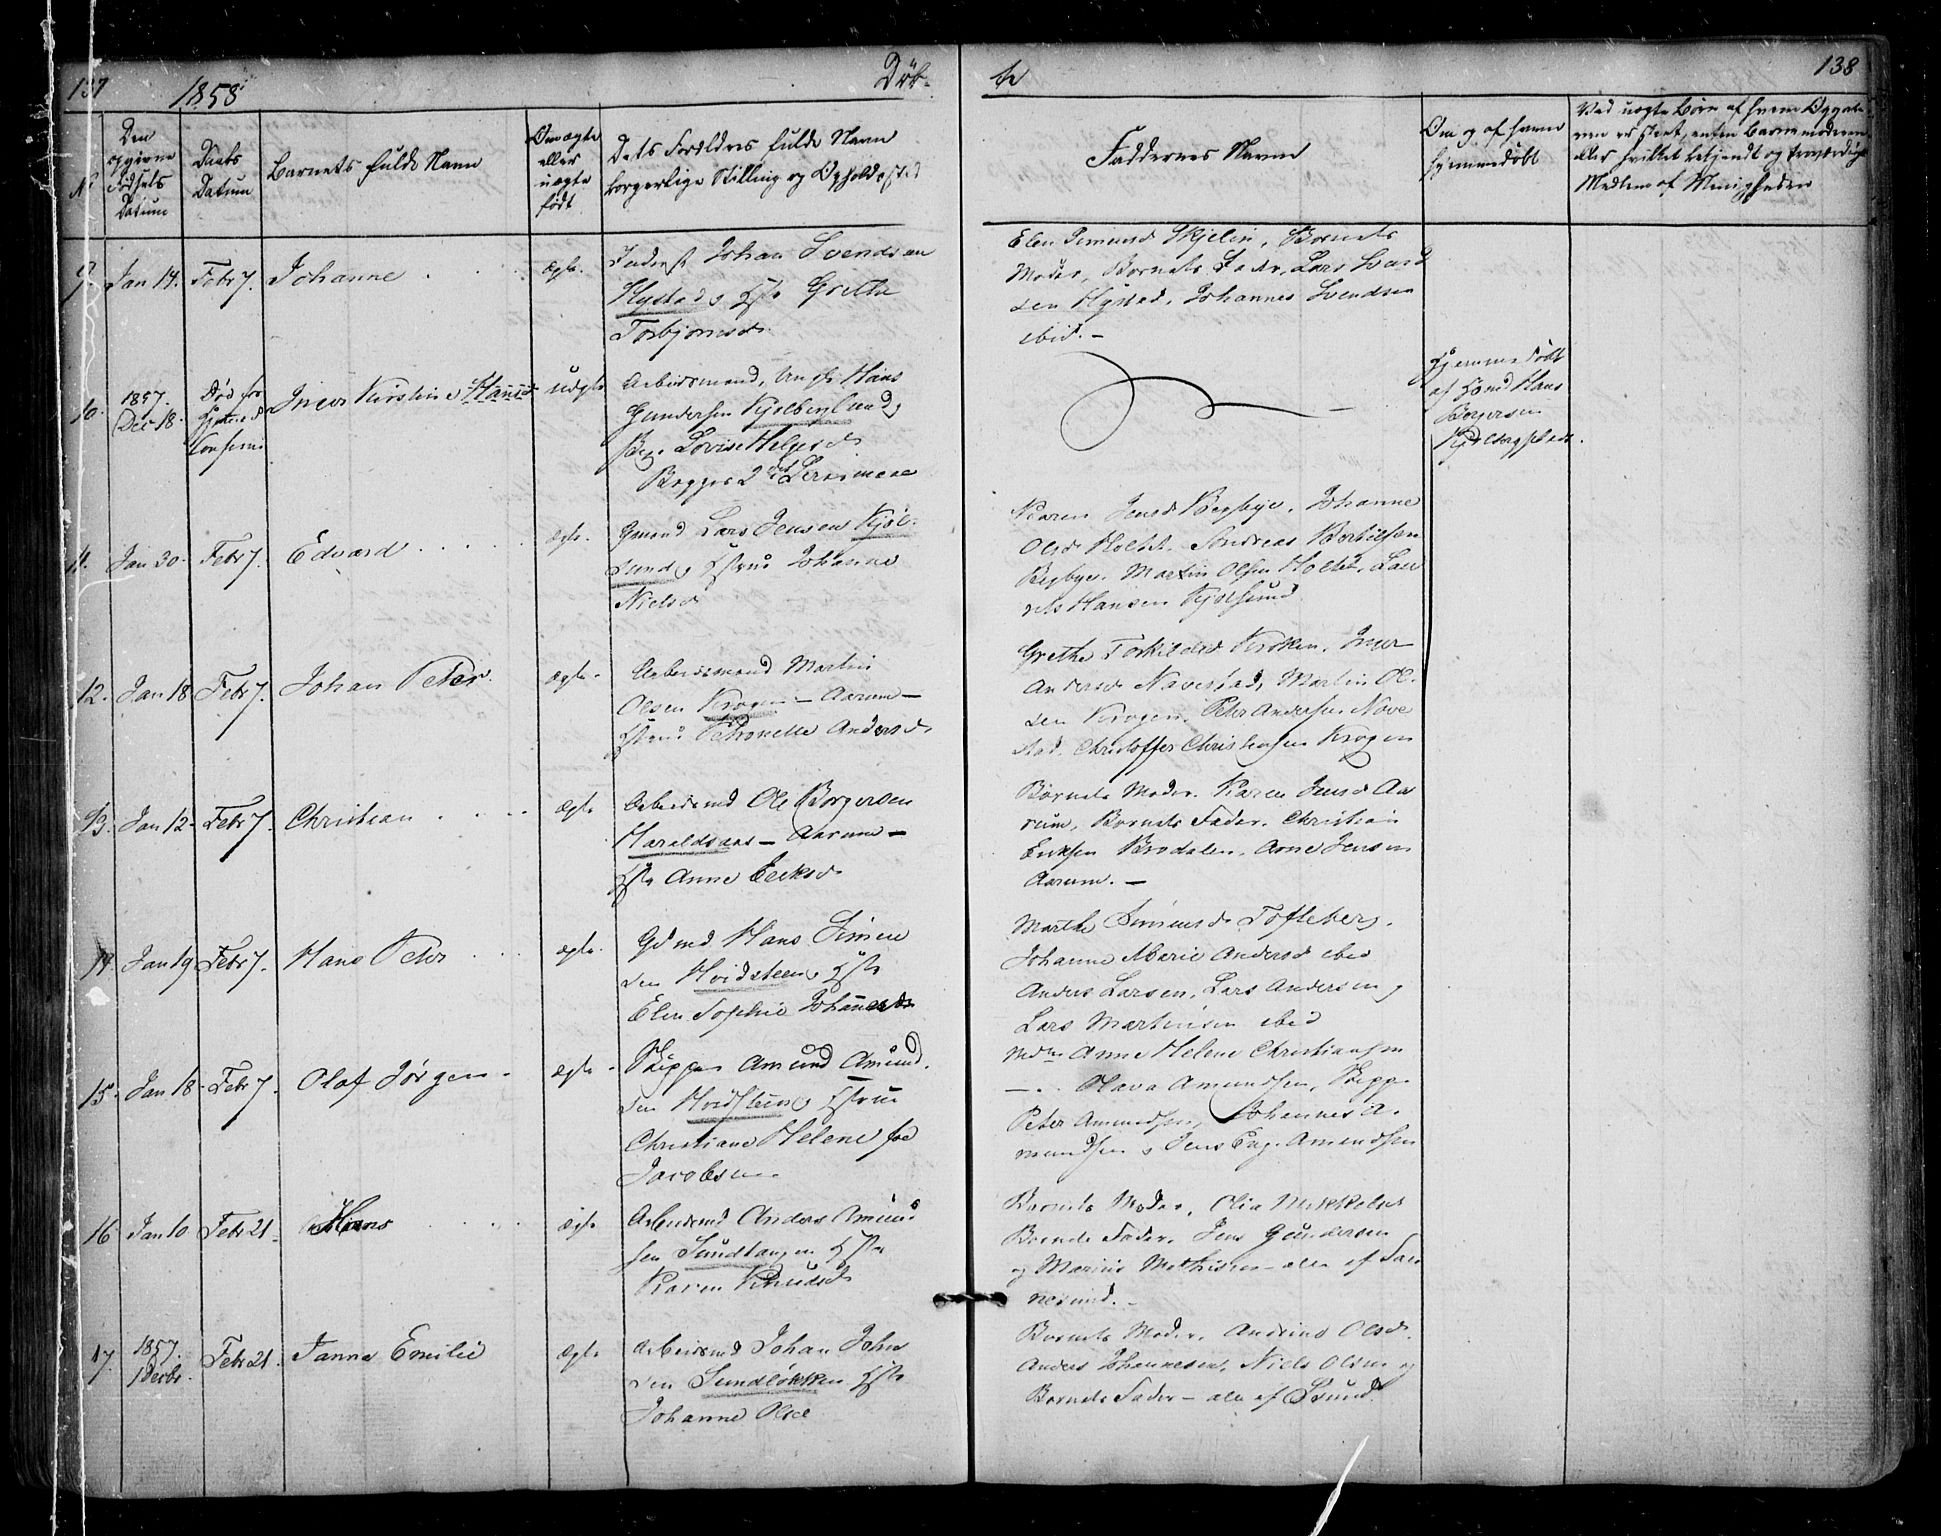 137
1858
Døb-
te
138
No
Den opgivne Fødsels Datum
Daabs Datum
Barnets fulde Navn
Om ægte eller uægte født
Dets Forældres fulde Navn
borgerlige Stilling og Opholdssted
Faddernes Navne
Om og af hvem
hjemmedøbt
Ved uægte Børn af hvem Opgiv-
en er skeet, enten Barnemoderen
eller hvilket bekjendt og troværdigt
Medlem af Menigheden
9. Jan 14. Febr 7. Johanne ægte.
Inderst Johan Svendsen
Hystad og Hstr Grethe
Torbjornsd.
Elen Skjelin, Barnets
Moder, Barnets Fader, Lars Svend
sen Hystad, Johannes Svendsen
ibid. -
10. 1857. Dec 18. Død før
Inger Kirstine Hansd uægte
Arbeidsmand, Ungk. Hans
Gundersen Kjølberglund,
Pige Lovise Helgesd.
Begges 2det Leiermaal
Hjemmedøbt
af Hans
Borgersen
11. Jan 30. Febr 7. Edvard ægte.
Gmand Lars Jensen Kjøl-
sund, Hstru Johanne
Nielsd
Karen Jensd Begbye, Johanne
Olsd Holte, Andreas Bertilsen
Begbye, Martin Olsen Holte, Lau
rits Hansen Kjølsund
12. Jan 18 Febr 7. Johan Peter. ægte.
Arbeidsmand Martin
Olsen Krogen - Aarum -
Hstru Petronelle Andersd.
Grethe Torkildsd Kroken, Inger
Andersd Navestad, Martin Ol-
sen Krogen, Peter Andersen Nave
stad, Christoffer Christensen Krogen
13. Jan 12. Febr 7. Christian ægte
Arbeidsmd Ole Borgersen
Haraldsaas - Aarum -
Hstr Anne Eriksd.
Barnets Moder. Karen Jensd Aa
rum, Barnets Fader. Christian
Eriksen Brodalen, Arne Jensen
Aarum. -
14. Jan 19 Febr 7. Hans Peter ægte.
Gdmd Hans Simen
sen Hvidsteen, Hstr
Elen Sophie Johannesd.
Marthe Simensd. Tofteberg.
Johanne Marie Andersd ibid
Anders Larsen, Lars Andersen,
Lars Martinsen ibid
15. Jan 18. Febr 7. Olaf Jørgen. ægte.
Skipper Amund Amund-
sen Hvidsteen, Hstrue
Christiane Helene fød
Jacobsen.
Mdm Anne Helene Christiansen
- Hava Amundsen, Skipp.
Peter Amundsen, Johannes A-
mundsen, Jens Amundsen
16 Jan 10 Febr 21. Hans ægte
Arbeidsmd Anders Amund
sen Sundtangen Hstr
Karen Knudsd.
Barnets Moder, Olia Mikkelsd
Barnets Fader. Jens Gundersen
og Marius Mathisen - alle af San
nesund. -
17. 1857. 1 Decbr. Febr 21. Janna Emilie ægte
Arbeidsmd Johan Johan
sen Sundløkken Hstr
Johanne Olsd
Barnets Moder. Andrine Olsd.
Anders Johannesen, Niels Olsen og
Barnets Fader - alle af Sund